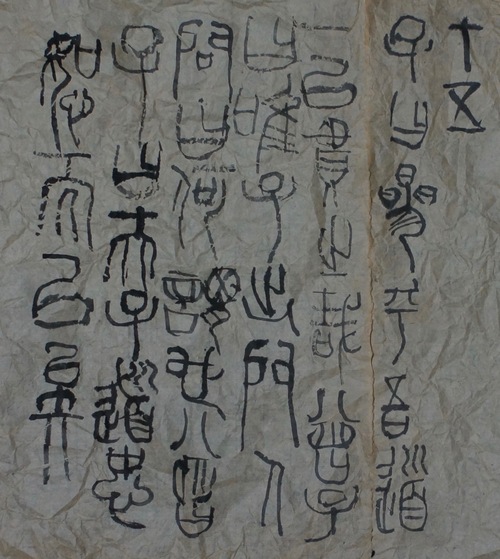 十五
子曰參乎吾道
一以貫之哉曾子
曰唯子出門人
問曰何謂也曾
子曰夫子道忠
恕而已矣